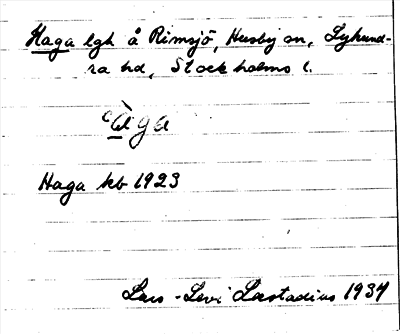 Haga lgh å Rimsjö, Husby sn, Lyhund-
ra hd, Stockholms l.
Haga kb 1923
Lars-Levi Læstadius 1934